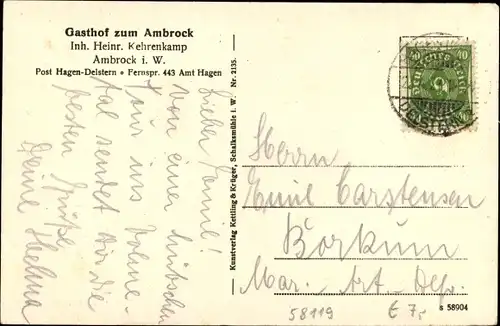 Gasthof zum Ambrock
Inh. Heinr. Kehrenkamp
Ambrock i. W.
Post Hagen-Delstern • Fernspr. 443 Amt Hagen
Lieber Hanne!
von einer hübschen
Tour ins Volme-
tal sendet Dir die
besten Grüße
Deine Helma
Kunstverlag Kettling & Krüger, Schalksmühle i. W. Nr. 2135.
Deutsches Reich
Herrn
Emil Carstensen
Borkum
Mar. Art. Dep.
s 58904
58119
€ 7,-